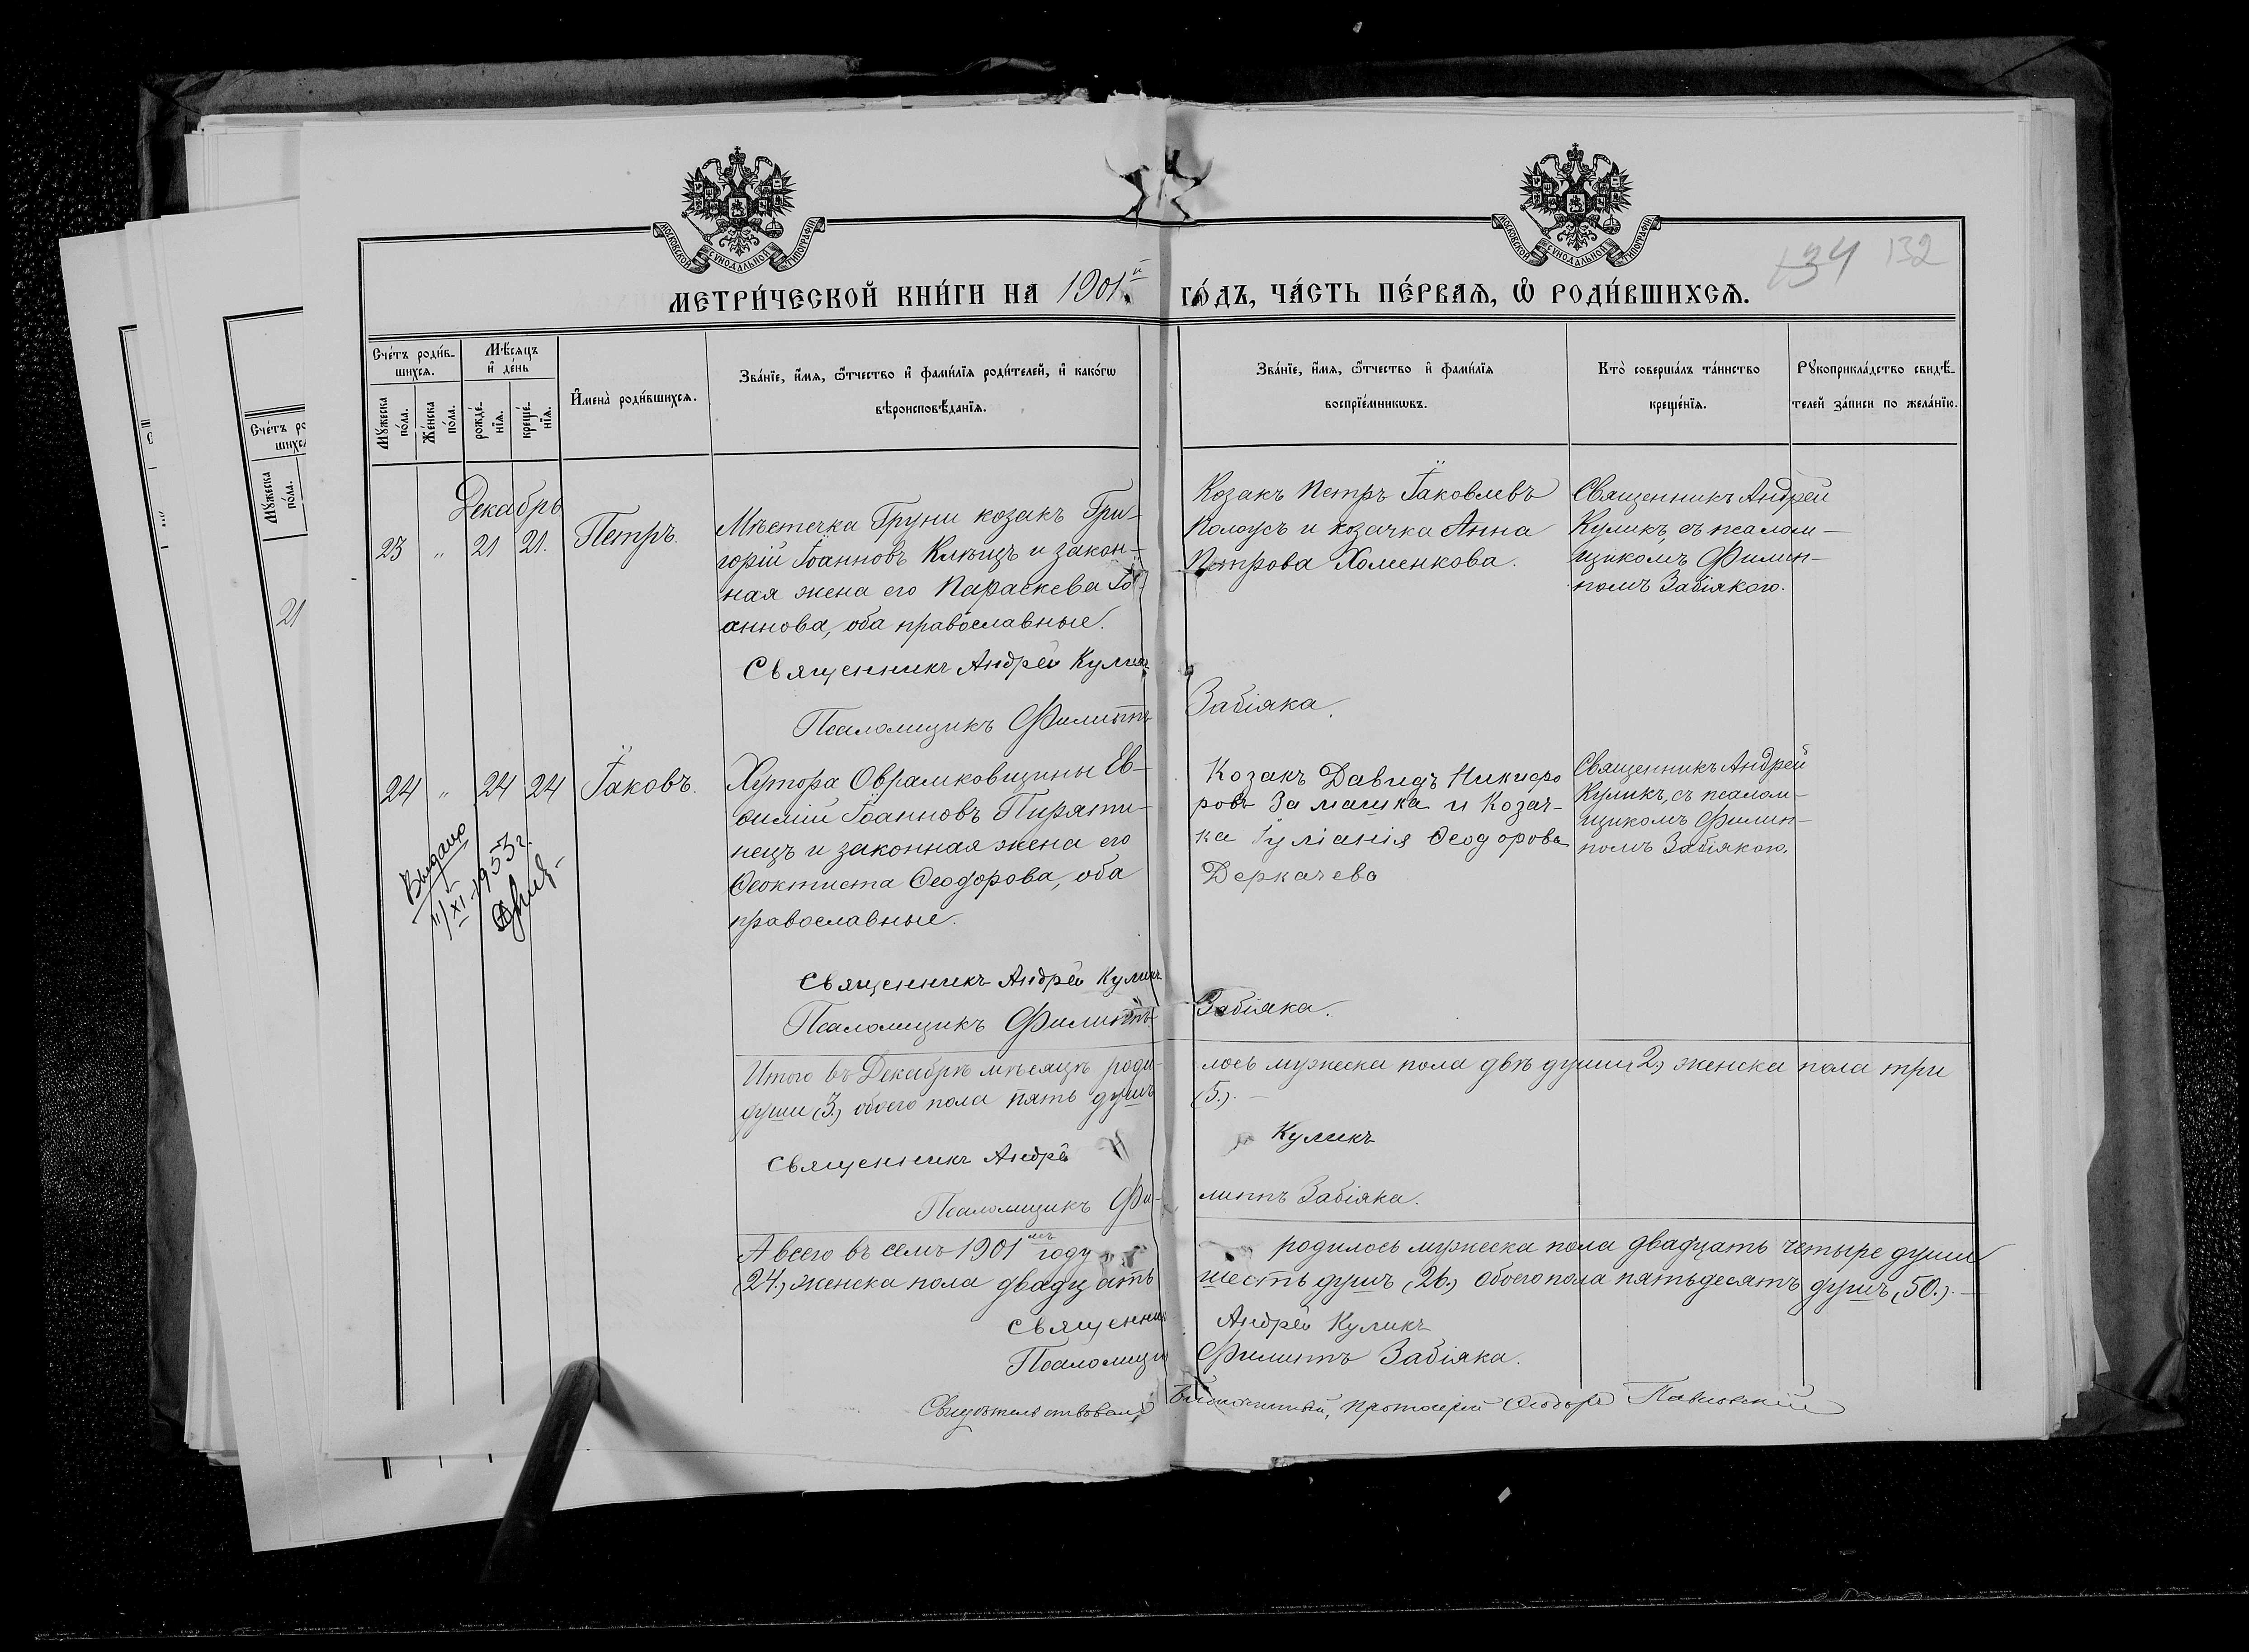 МОСКОВСКОЙ СѴНОДАЛЬНОЙ ТИПОГРАФІИ
МОСКОВСКОЙ СѴНОДАЛЬНОЙ ТИПОГРАФІИ
134 132
МЕТРИ́ЧЕСКОЙ КНИ́ГИ НА 1901й ГО́ДЪ, ЧА́СТЬ ПЕ́РВАЯ, Ѡ҆ РОДИ́ВШИХСЯ.
Сче́тъ роди́в-
шихся.
Мꙋ́жеска
по́ла.
Же́нска
по́ла.
Мѣ́сяцъ
и҆ де́нь
рожде́-
нїя.
креще́-
нїя.
И҆мена̀ роди́вшихся.
Зва́нїе, и҆́мя, ѻ҆́тчество и҆ фами́лїя роди́телей, и҆ како́гѡ
вѣроисповѣ́данїя.
Зва́нїе, и҆́мя, ѻ҆́тчество и҆ фами́лїя
воспрїе́мникѡвъ.
Кто̀ соверша́лъ та́инство
креще́нїя.
Рꙋкоприкла́дство свидѣ́-
телей за́писи по жела́нїю.
Декабрь
23 " 21 21. Петръ.
Мѣстечка Груни козакъ Гри-
горій Іоанновъ Клющъ и закон-
ная жена его Параскева Іо-
аннова, оба православные.
Козакъ Петръ Іаковлевъ
Колоусъ и козачка Анна
Петрова Хоменкова.
Священникъ Андрей
Куликъ, съ псалом-
щикомъ Филип-
помъ Забіякою.
Священникъ Андрей Куликъ
Псаломщикъ Филиппъ Забіяка.
24 " 24 24 Іаковъ.
Хутора Оврамковщины Ев-
фимій Іоанновъ Пиряти-
нецъ и законная жена его
Ѳеоктиста Ѳеодорова, оба
православные.
Козакъ Давидъ Никифо
ровъ Замашка и Козач-
ка Іуліанія Ѳеодорова
Деркачева
Священникъ Андрей
Куликъ, съ псалом-
щикомъ Филип-
помъ Забіякою.
Выдано
11/XI-1953г.
Священникъ Андрей Куликъ
Псаломщикъ Филиппъ Забіяка.
Итого въ Декабрѣ мѣсяцѣ роди- лось мужеска пола двѣ души (2.) женска пола три
души (3.) обоего пола пять душъ (5.). —
Священникъ Андрей Куликъ
Псаломщикъ Фи- липпъ Забіяка.
А всего въ семъ 1901мъ году родилось мужеска пола двадцать четыре души
(24.) женска пола двадцать шесть душъ (26.) обоего пола пятьдесятъ душъ (50.). —
Священникъ Андрей Куликъ
Псаломщикъ Филиппъ Забіяка.
Свидѣтельствовалъ Благочинный, Протоіерей Ѳеодоръ Павловскій
Сче́тъ ро
шихся
Мꙋ́жеска
по́ла.
21